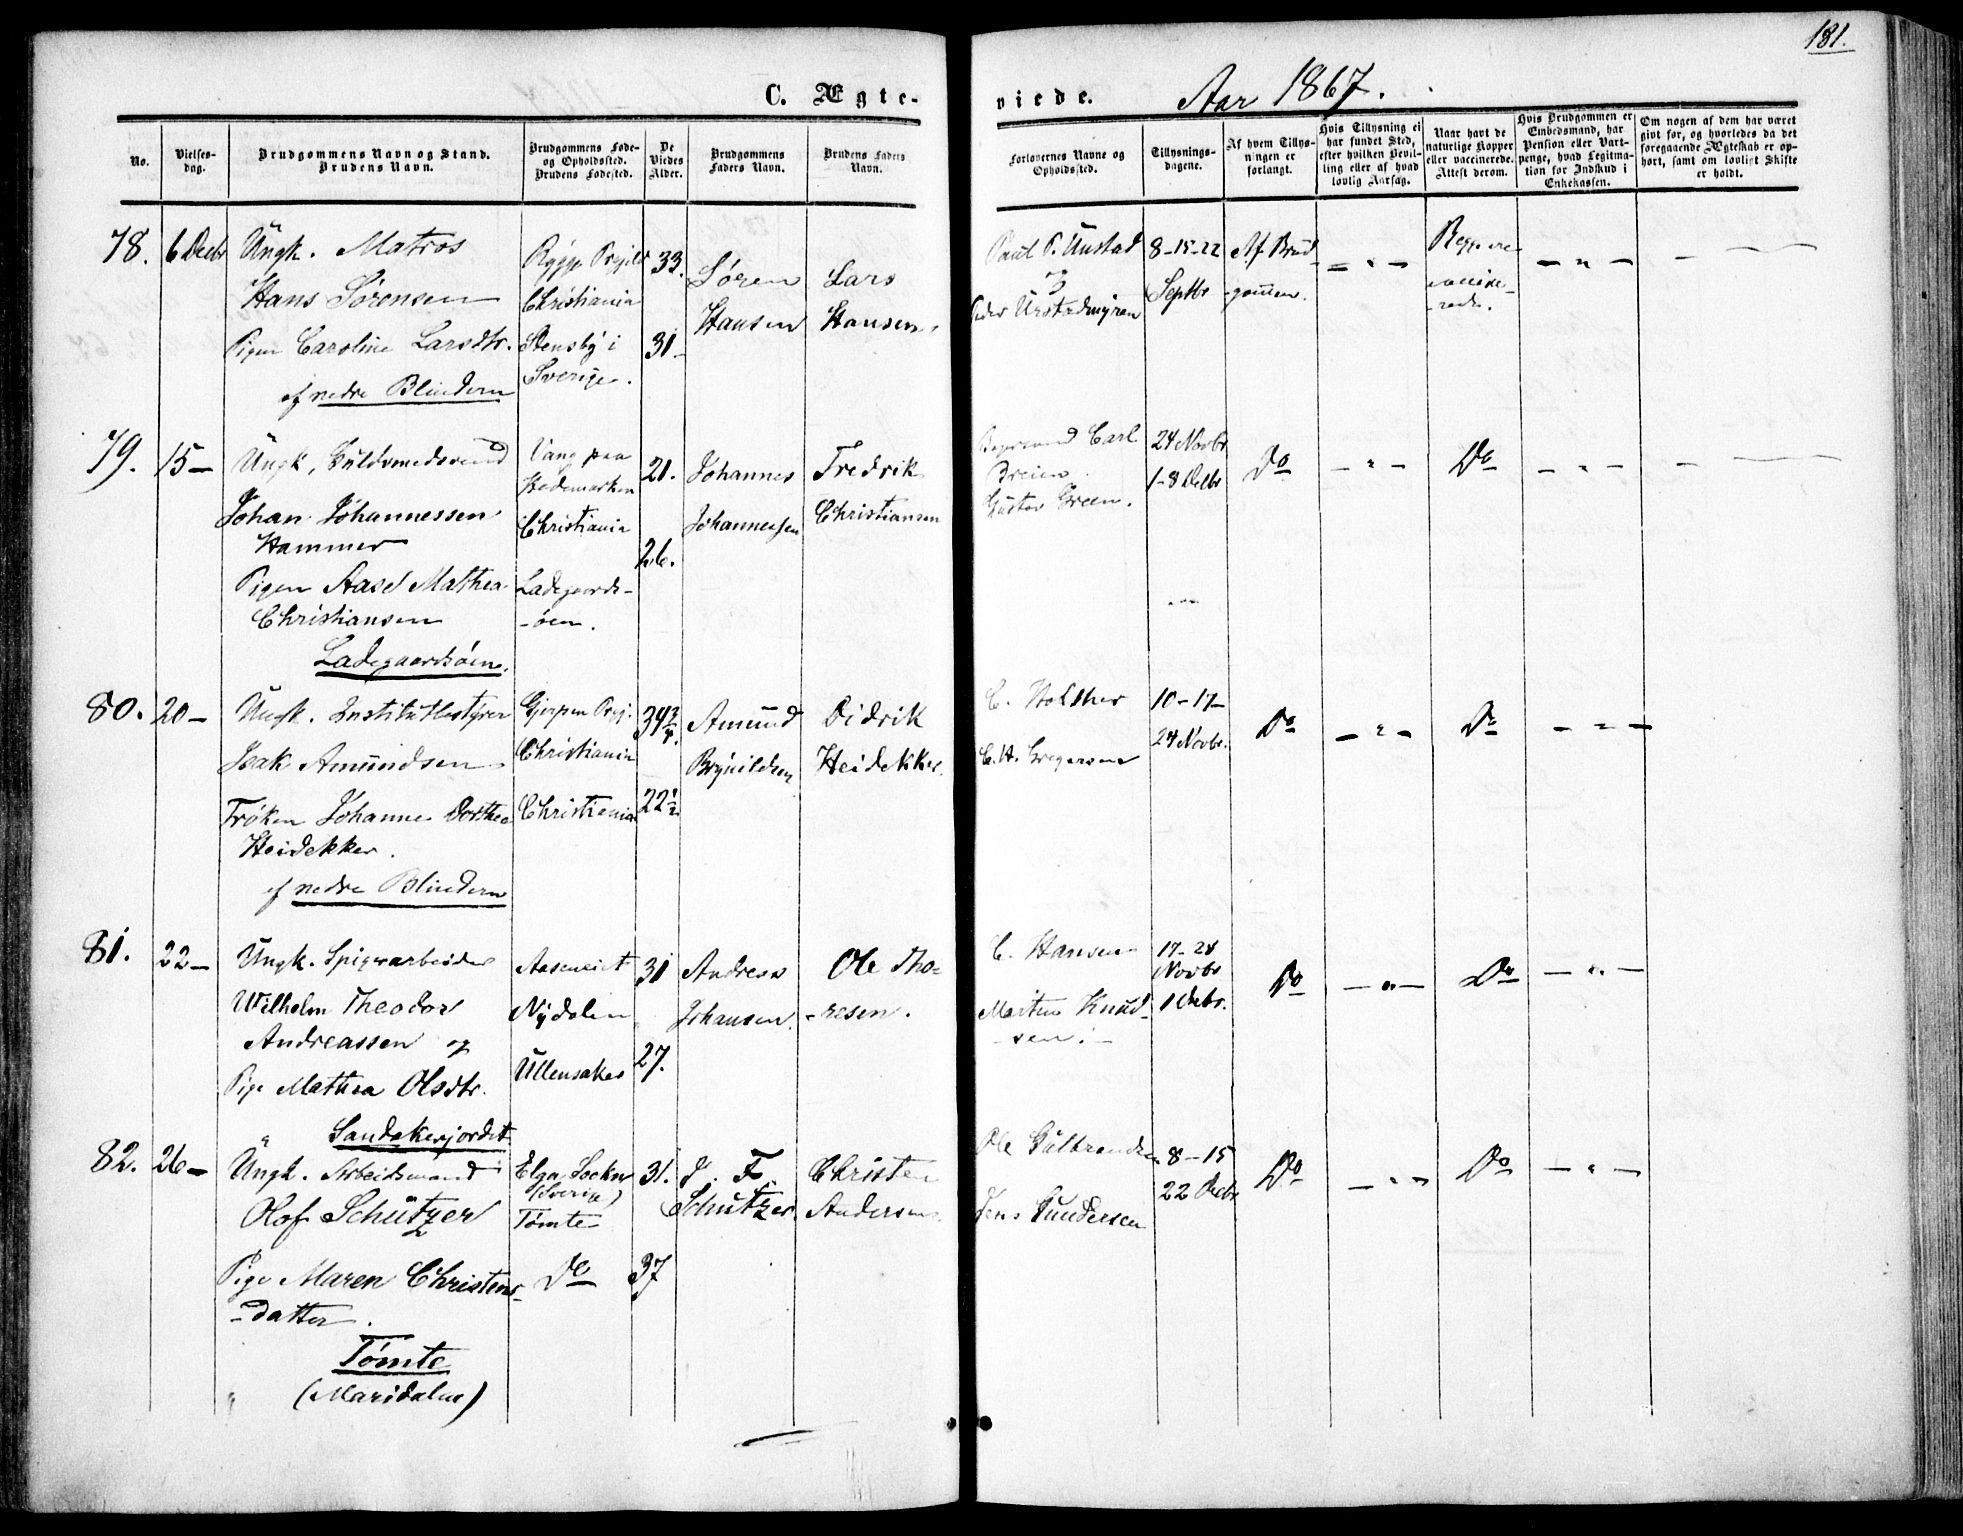 181.
C. Ægte-
viede.
Aar 1867.
No.
Vielses-
dag.
Brudgommens Navn og Stand.
Brudens Navn.
Brudgommens Føde-
og Opholdssted.
Brudens Fødested.
De
Viedes
Alder.
Brudgommens
Faders Navn.
Brudens Faders
Navn.
Forlovernes Navne og
Opholdssted.
Tillysnings-
dagene.
Af hvem Tillys-
ningen er
forlangt.
Hvis Tillysning ei
har fundet Sted,
efter hvilken Bevil-
ling eller af hvad
lovlig Aarsag.
Naar havt de
naturlige Kopper
eller vaccinerede.
Attest derom.
Hvis Brudgommen er
Embedsmand, har
Pension eller Vart-
penge, hvad Legitima-
tion for Indskud i
Enkekassen.
Om nogen af dem har været
givt før, og hvorledes da det
foregaaende Ægteskab er op-
hørt, samt om lovligt Skifte
er holdt.
78. 6 Decbr
Ungk. Matros
Hans Sørensen
Pigen Caroline Larsdtr.
af nedre Blindern
Rygge Prgjeld
Christiania
Stensby i
Sverige.
33.
31.
Søren
Hansen
Lars
Hansen.
Paul P. Unstad
og
Peder Urstadmyren
8-15-22
Septbr
Af Brud
-gommen.
- " -
Begge re-
vaccine-
-rede.
- " -
79. 15-
Ungk. Guldsmedsvend
Johan Johannessen
Hammer
Pigen Aase Mathea
Christiansen
Ladegaardsøen.
Vang paa
Hedemarken
Christiania
Ladegaards-
-øen.
21.
26.
Johannes
Johannessen
Fredrik
Christiansen
Carl
Breien
Gustav Green.
24 Novbr
1-8 Decbr
Do
- " -
Do
- " -
80. 20-
Ungk. Institutbestyrer
Isak Amundsen
Frøken Johanne Dorthea
Heidekker.
af nedre Blindern
Gjerpen Prgj.
Christiania
Christiania
34 3/4.
22 1/2
Amund
Brynildsen
Didrik
Heidekker.
C. Holther
C. H. Gregersen
10-17-
24 Novbr.
Do
- " -
Do
- " -
81. 22-
Ungk. Spigerarbeider
Wilhelm Theodor
Andreassen og
Pige Mathea Olsdtr.
Sandakerjordet
Nydalen
Ullensaker
31
27.
Andreas
Johansen.
Ole Tho=
-resen.
C. Hansen
Morten Knud-
-sen.
17-24
Novbr
1 Decbr.
Do
- " -
Do
- " -
82. 26-
Ungk. Arbeidsmand
Olof Schützer
Pige Maren Christens-
-datter.
Tømte
(Maridalen)
Elga Sockn
(Sverige)
Tømte
Do
31.
37
J. F.
Schützer.
Christen
Andersen.
Ole Gulbrandsen
Jens Gundersen
8-15
22 Decbr
Do
- " -
Do
- " -